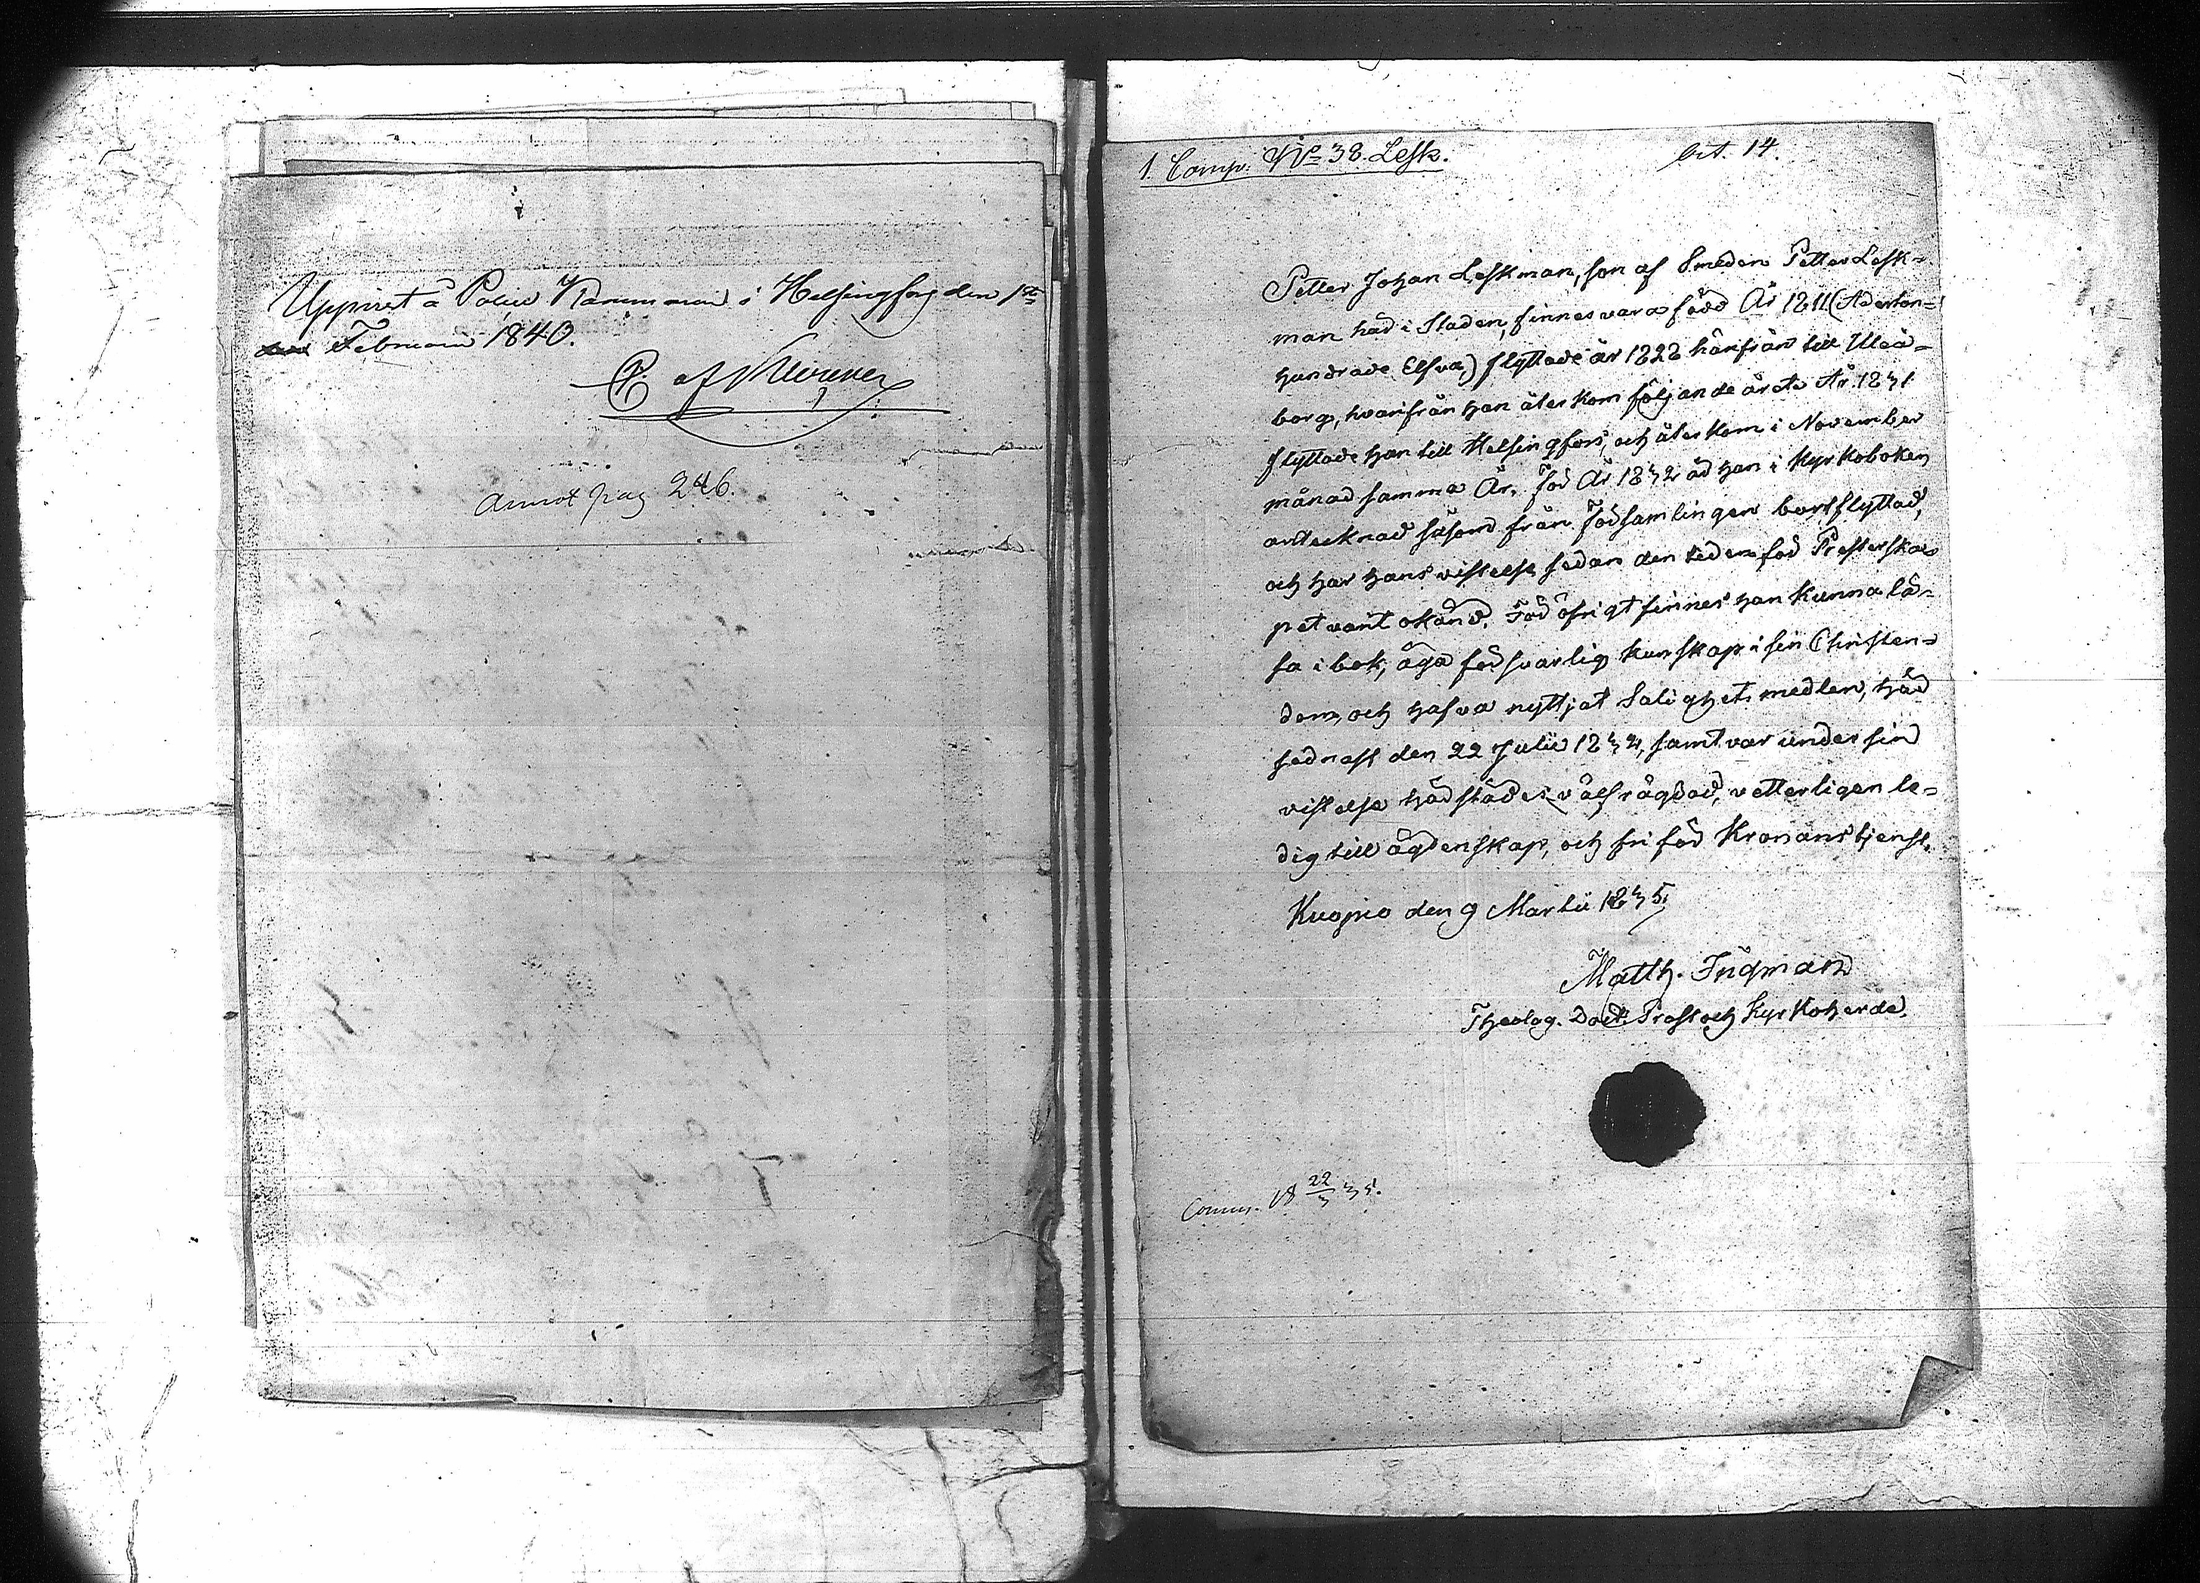 Uppvist å Police Kammaren i Helsingfors den 1sta
Februarii 1840.
annot pag 246.
1. Comp. No 38. Lesk.
bit. 14.
Petter Johan Leskman, son af Smeden Petter Lesk-
man här i Staden, finnes vara född År 1811 (Aderton-
hundrade Elfva,) flyttade år 1828 härifrån till Uleå-
borg, hvarifrån han återkom följande året. År 1831
flyttade han till Helsingfors, och återkom i November
månad samma År. För År 1832 är han i Kyrkoboken
antecknad såsom från Församlingen bortflyttad,
och har hans vistelse sedan den tiden för Presterska-
pet varit okänd. För öfrigt finnes han kunna lä-
sa i bok, äga försvarlig kunskap i sin Christen-
dom, och hafva nyttjat Salighets medlen, här
sednast den 22 Julii 1832, samt var under sin
vistelse härstädes välfrägdad, vetterligen le-
dig till ägtenskap, och fri för Kronans tjenst.
Kuopio den 9 Martii 1835.
Matth. Ingman
Theolog. Doct. Prost och Kyrkoherde.
Comm. 18 22/3 35.